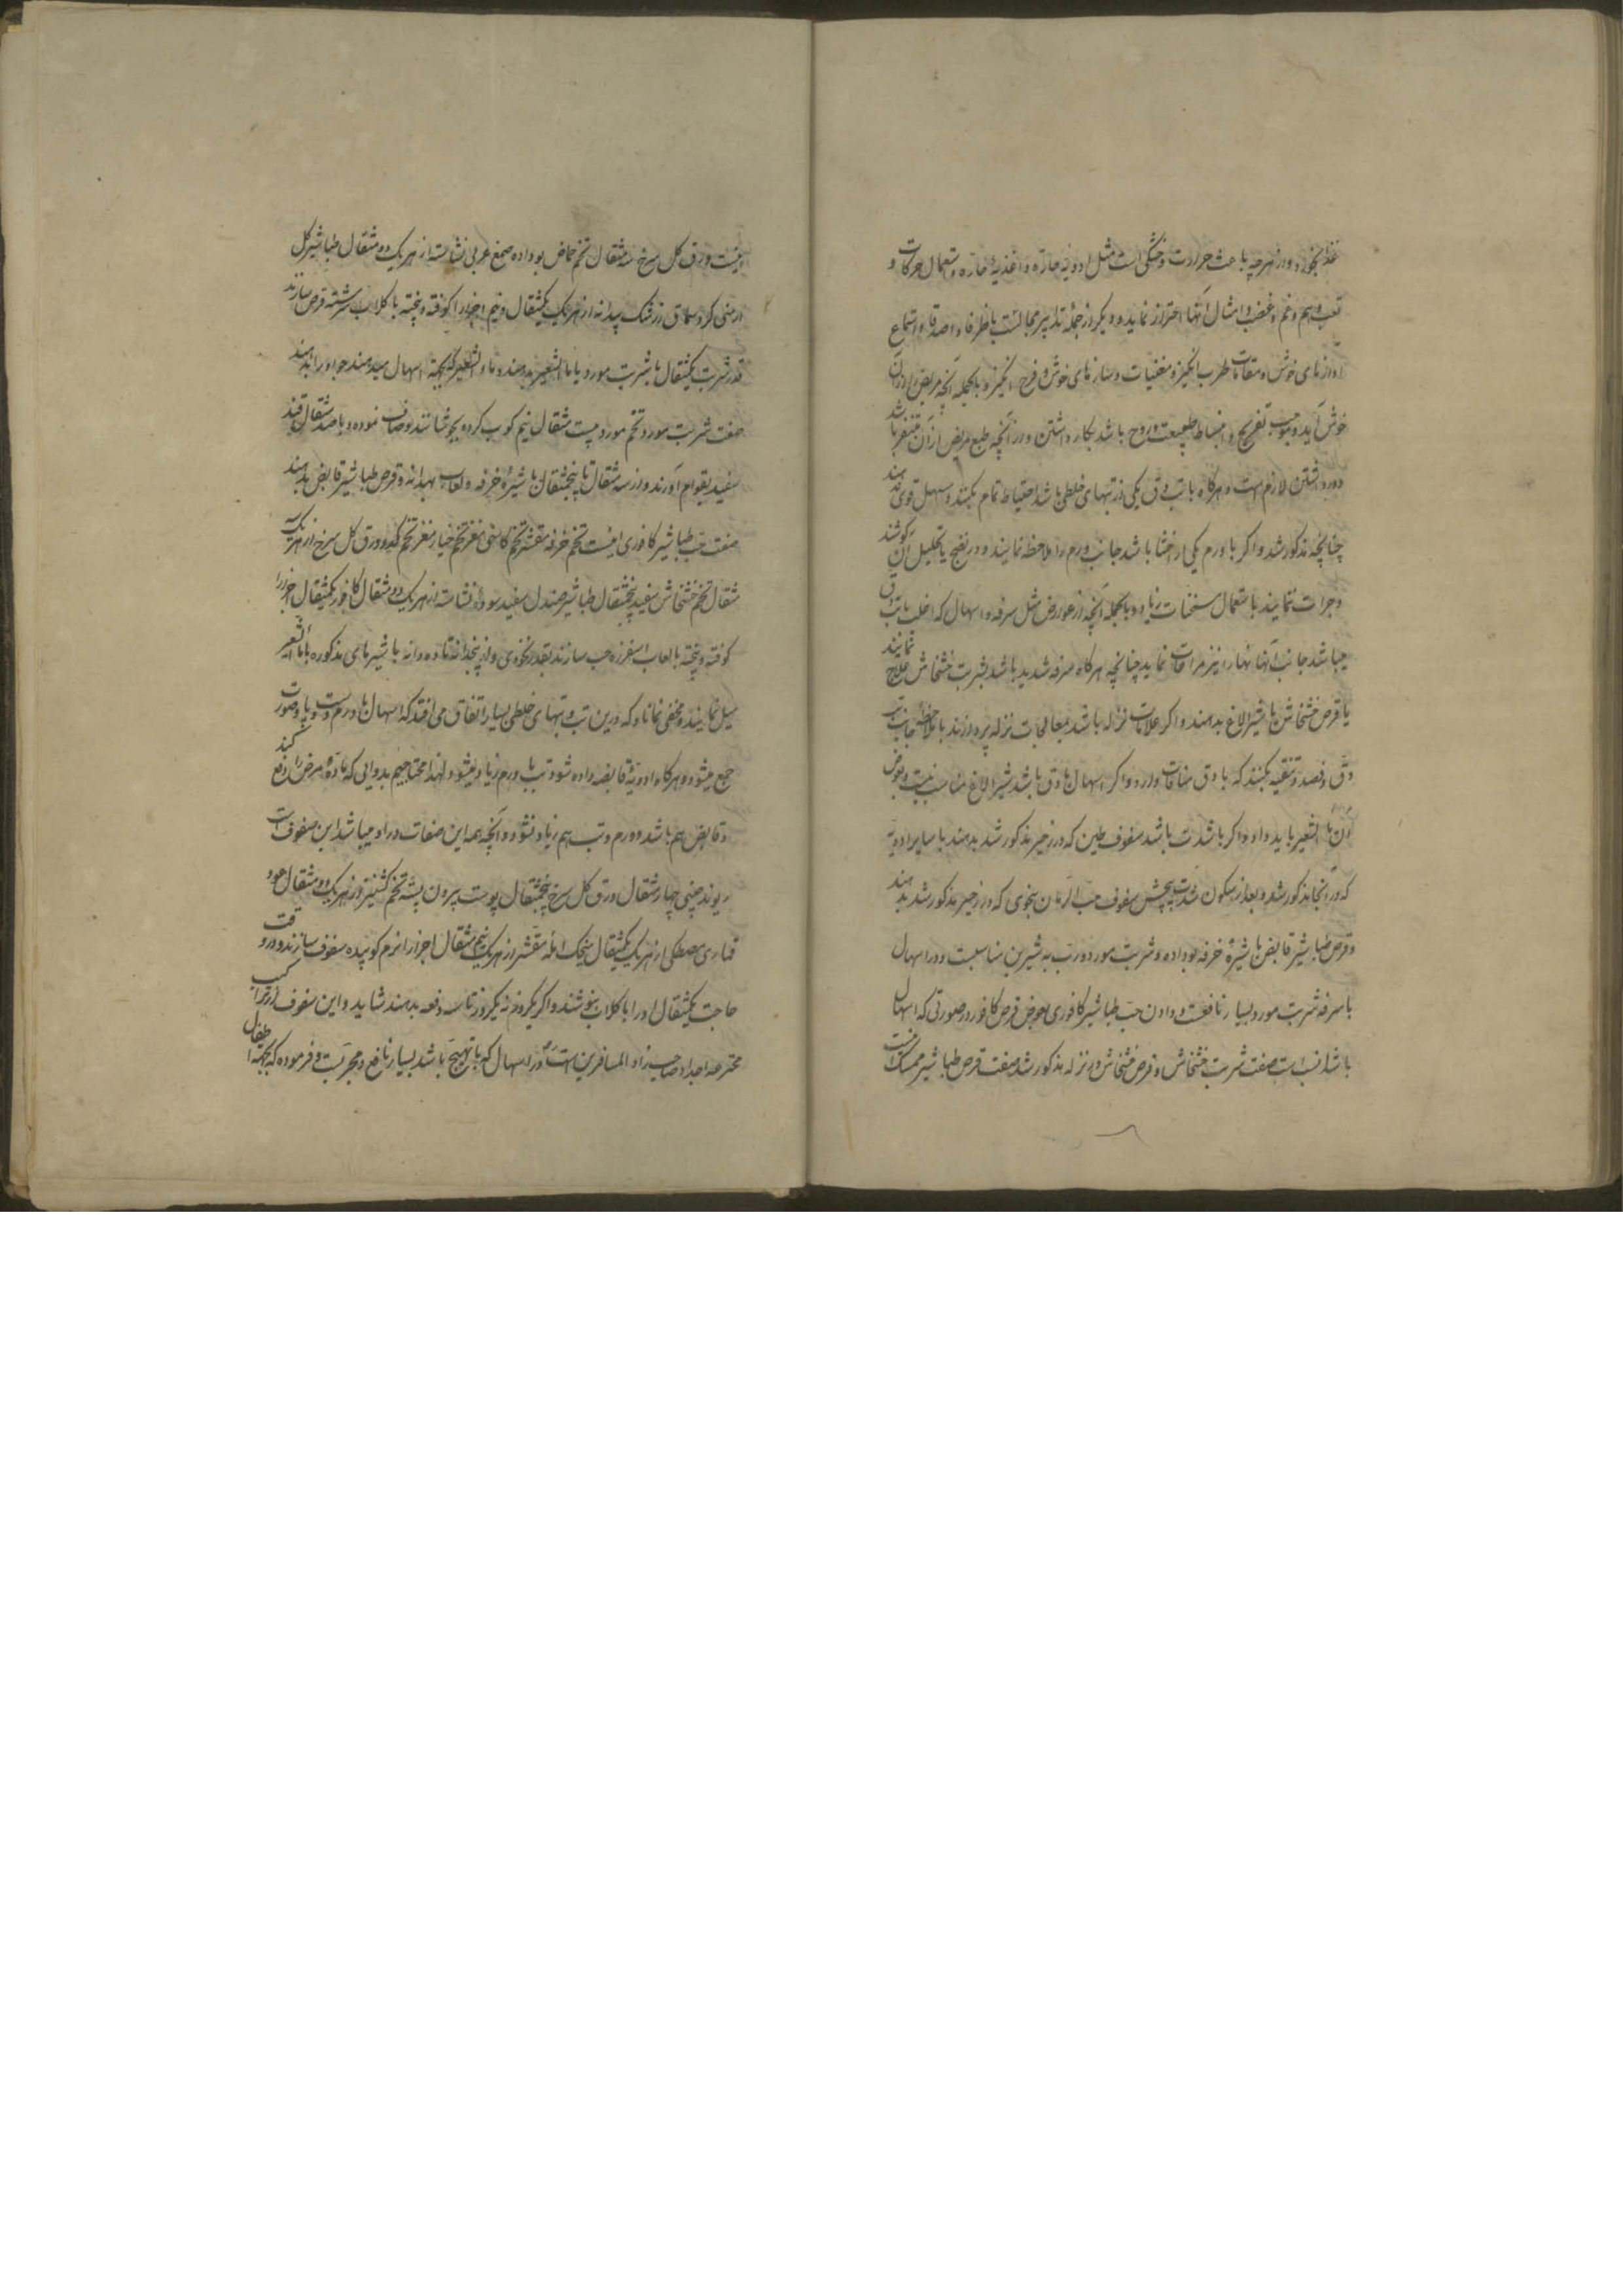 غذا بخورد و از هرچه باعث حرارت و خشکی است مثل ادویه حاره و اغذیه حاره و استعمال حرکات و
تعب و هم و غم و غضب و امثال آنها احتراز نماید و دیگر از جمله تدابیر مجالست با ظرفا و اصدقا و استماع
آوازهای خوش و مقامات طرب انگیز و مغنیات و سازهای خوش و فرح انگیز و بالجمله آنچه مریض را از آن
خوش آید و موجب تفریح و انبساط طبیعت و روح باشد بکار داشتن و از آنچه طبع مریض از آن متنفر باشد
دور داشتن لازم است و هرگاه با تب دق یکی از تبهای خلطی باشد احتیاط تمام بکنند و مسهل قوی ندهند
چنانچه مذکور شد و اگر با ورم یکی از احشا باشد جانب ورم را ملاحظه نمایند و در نضج یا تحلیل آن کوشند
و جرات ننمایند باستعمال مسخنات زیاد و بالجمله آنچه از عوارض مثل سرفه و اسهال که اغلب با تب دق
میباشد جانب آنها را نیز مراعات نماید چنانچه هرگاه سرفه شدید باشد بشربت خشخاش علاج نمایند
یا قرص خشخاش با شیر الاغ بدهند و اگر علامات نزله باشد بمعالجات نزله پردازند با ملاحظه جانب تب
دق و فصد و تنقیه نکنند که با دق منافات دارد و اگر اسهال با دق باشد شیر الاغ مناسب نیست و بعوض
آن ماء الشعیر باید داد و اگر با شدت باشد سفوف طین که در زحیر مذکور شد بدهند با سایر ادویه
که در آنجا مذکور شد و بعد از سکون شدت پیچش سفوف حب الرمان بنحوی که در زحیر مذکور شد بدهند
و قرص طباشیر قابض با شیره خرفه بوداده و شربت مورد و رب به شیرین مناسبت و در اسهال
با سرفه شربت مورد بسیار نافعست و دادن حب طباشیر کافوری بعوض قرص کافور در صورتی که اسهال
باشد انسب است صفت شربت خشخاش و قرص خشخاش در نزله مذکور شد صفت قرص طباشیر ممسک اینست
اینست ورق گل سرخ سه مثقال تخم حماض بوداده صمغ عربی نشاسته از هر یک دو مثقال طباشیر گل
ارمنی گرد سماق زرشک بیدانه از هر یک یکمثقال و نیم اجزا را کوفته و بیخته با گلاب سرشته قرص سازند
قدر شربت یکمثقال با شربت مورد یا ماء الشعیر بدهند و ماء الشعیر که بجهة اسهال میدهند جو او را بدهند
صفت شربت مورد تخم مورد بیست مثقال نیم کوب کرده بجوشانند و صاف نموده و با صد مثقال قند
سفید بقوام آورند و از سه مثقال تا پنجمثقال با شیره خرفه و لعاب بهدانه و قرص طباشیر قابض بدهند
صفت حب طباشیر کافوری اینست تخم خرفه مقشر تخم کاسنی مغز تخم خیار مغز تخم کدو ورق گل سرخ از هر یک سه
مثقال تخم خشخاش سفید پنجمثقال طباشیر صندل سفید سوده نشاسته از هر یک دو مثقال کافور یکمثقال اجزا را
کوفته و بیخته با لعاب اسفرزه حب سازند بقدر نخودی و از پنجدانه تا ده دانه با شیرهای مذکوره یا ماء الشعیر
میل نمایند و مخفی نماناد که درین تب و تبهای خلطی بسیار اتفاق می افتد که اسهال با ورم دست و پا و صورت
جمع میشود و هرگاه ادویه قابضه داده شود تب با ورم زیاد میشود لهذا محتاجیم بدوایی که ماده مرض را دفع کند
و قابض هم باشد و ورم و تب هم زیاد نشود و آنچه همه این صفات در او میباشد این سفوف است
ریوند چینی چهار مثقال ورق گل سرخ پنجمثقال پوست بیرون پسته تخم گشنیز از هر یک دو مثقال عود
قماری مصطکی از هر یک یکمثقال سنجد آمله مقشر از هر یک نیم مثقال اجزا را نرم کوبیده سفوف سازند و در وقت
حاجت یکمثقال او را با گلاب بنوشند و اگر یکروز نه یکروز تا سه دفعه بدهند شاید و این سفوف از ترکیب
مخترعه اجداد صاحب زاد المسافرین است و در اسهال که با تهیج باشد بسیار نافع و مجربست و فرموده که بجهة اطفال